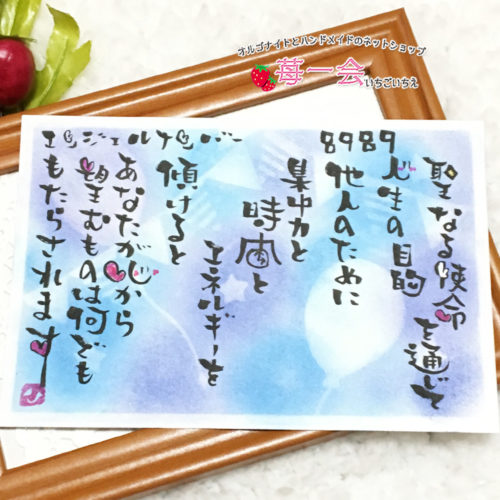 オルゴナイトとハンドメイドのネットショップ
苺一会 いちごいちえ
聖なる使命を通じて
人生の目的
8989
他人のために
集中力と
時間と
エネルギーを
傾けると
あなたが心から
望むものは何でも
もたらされます
エンジェルナンバー